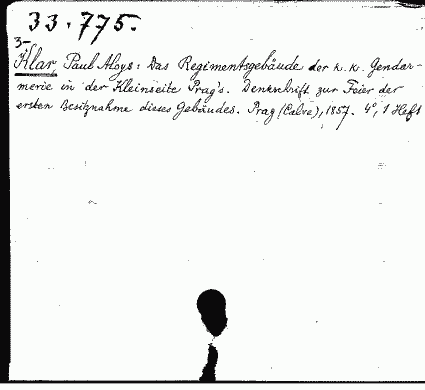 33.775.
3-
Klar, Paul Aloys: Das Regimentsgebäude der k. k. Gendar-
merie in der Kleinseite Prag's. Denkschrift zur Feier der
ersten Besitznahme dieses Gebäudes. Prag (Calve), 1857. 4°, 1 Heft